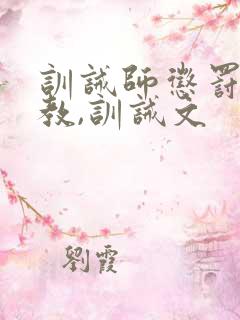 訓誡師懲罰
教,訓誡文
劉霞